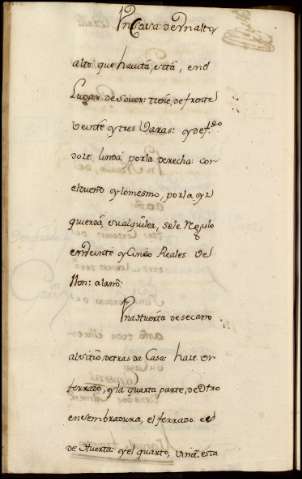 Una Casa de un alto y
alto que havita, está, en el
Lugar de Souer: tiene, de frente
Veinte y tres Varas: y de f.do
doze, linda, por la derecha: con
el dueño y lo mesmo, por la yz
quierda, su alquiler, se le regulo
en Veinte y Cinco Reales Ve
llon: al año
Una Huerta de secano
al sitio, detras da Casa: hace un
ferrado, y la quarta parte, de otro
en sembradura, el ferrado es
de Huerta: y el quarto, inct. esta